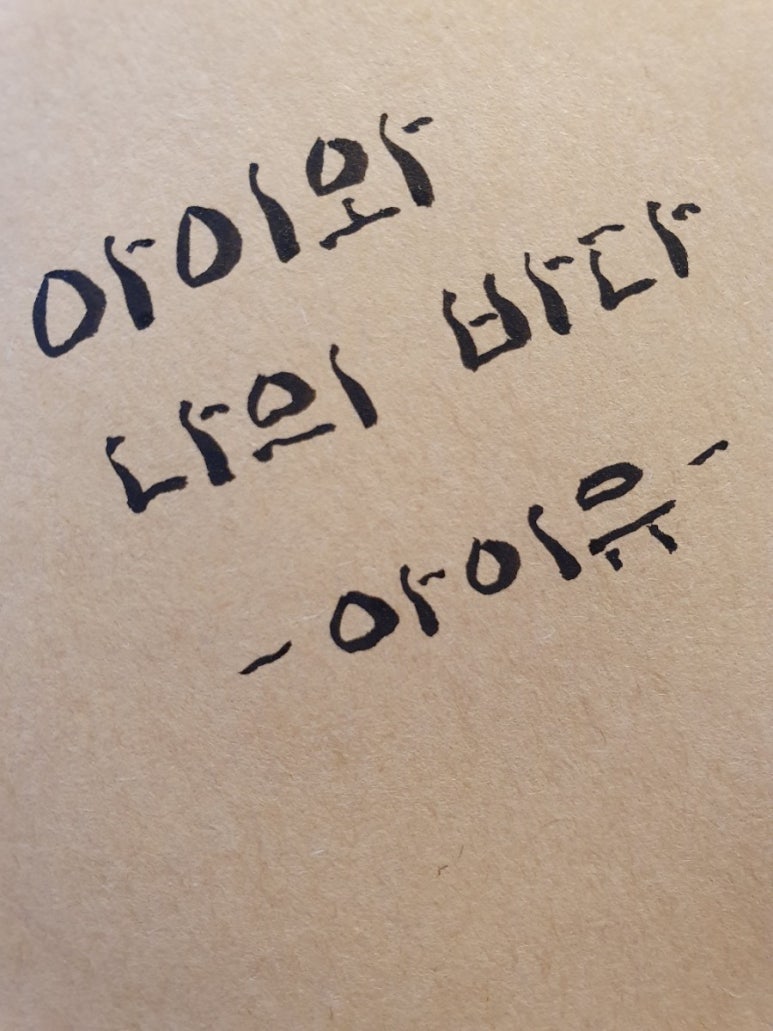 아이와
나의 바다
-아이유-